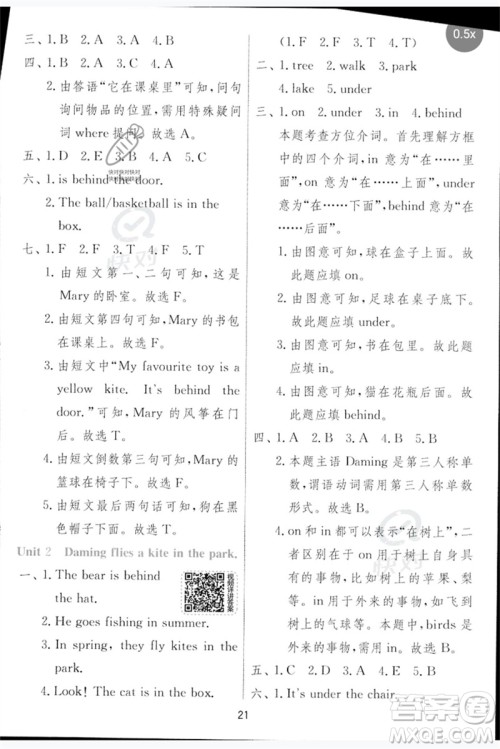 0.5x
三、1. B 2. A 3. B
四、1. B 2. A 3. A
2. 由答语“它在课桌里”可知，问句
询问物品的位置，需用特殊疑问
词 where 提问。故选 A。
五、1. D 2. E 3. B 4. A 5. C
六、1. is behind the door.
2. The ball/basketball is in the
box.
七、1. F 2. F 3. T 4. F 5. T
1. 由短文第一、二句可知，这是
Mary 的卧室。故选 F。
2. 由短文第四句可知，Mary 的书包
在课桌上。故选 F。
3. 由短文中“My favourite toy is a
yellow kite. It's behind the
door.”可知，Mary 的风筝在门
后。故选 T。
4. 由短文倒数第三句可知，Mary 的
篮球在椅子上。故选 F。
5. 由短文最后两句话可知，有一顶
黑色帽子在床下。故选 T。
Unit 2 Daming flies a kite in the park.
一、1. The bear is behind
the hat.
2. He goes fishing in summer.
3. In spring, they fly kites in the
park.
4. Look! The cat is in the box.
视频讲评答案
快对
（1. F 2. F 3. T 4. T）
二、1. tree 2. walk 3. park
4. lake 5. under
三、1. on 2. under 3. in 4. behind
本题考查方位介词。首先理解方框
中的四个介词，in 意为“在……里
面”，on 意为“在……上面”，under
意为“在……下面”，behind 意为
“在……后面”。
1. 由图意可知，球在盒子上面。故
此题应填 on。
2. 由图意可知，足球在桌子底下。
故此题应填 under。
4. 由图意可知，猫在花瓶后面。故
此题应填 behind。
四、1. A 2. B 3. A 4. A
2. 本题主语 Daming 是第三人称单
数，谓语动词需用第三人称单数
形式。故选 B。
4. on 和 in 都可以表示“在树上”，
on 用于长在树上、属于树的一部
分的事物，如树上的苹果、梨；in
用于外来的事物，如落到
树上的气球等。本题中，birds 是
属于外来的事物，用 in。故选 A。
五、1. C 2. A 3. B 4.
六、1. It's under the chair.
21
答案圈
MXQE.COM